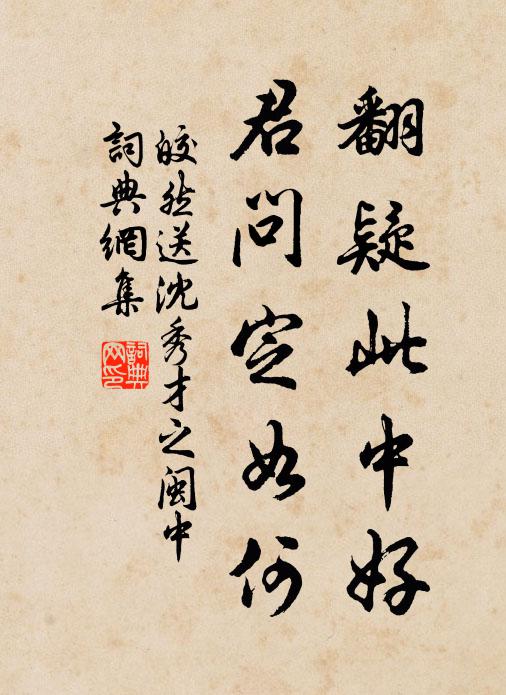 翻疑此中好
君問定如何
皎然送沈秀才之閩中
詞典網集
詞典网印